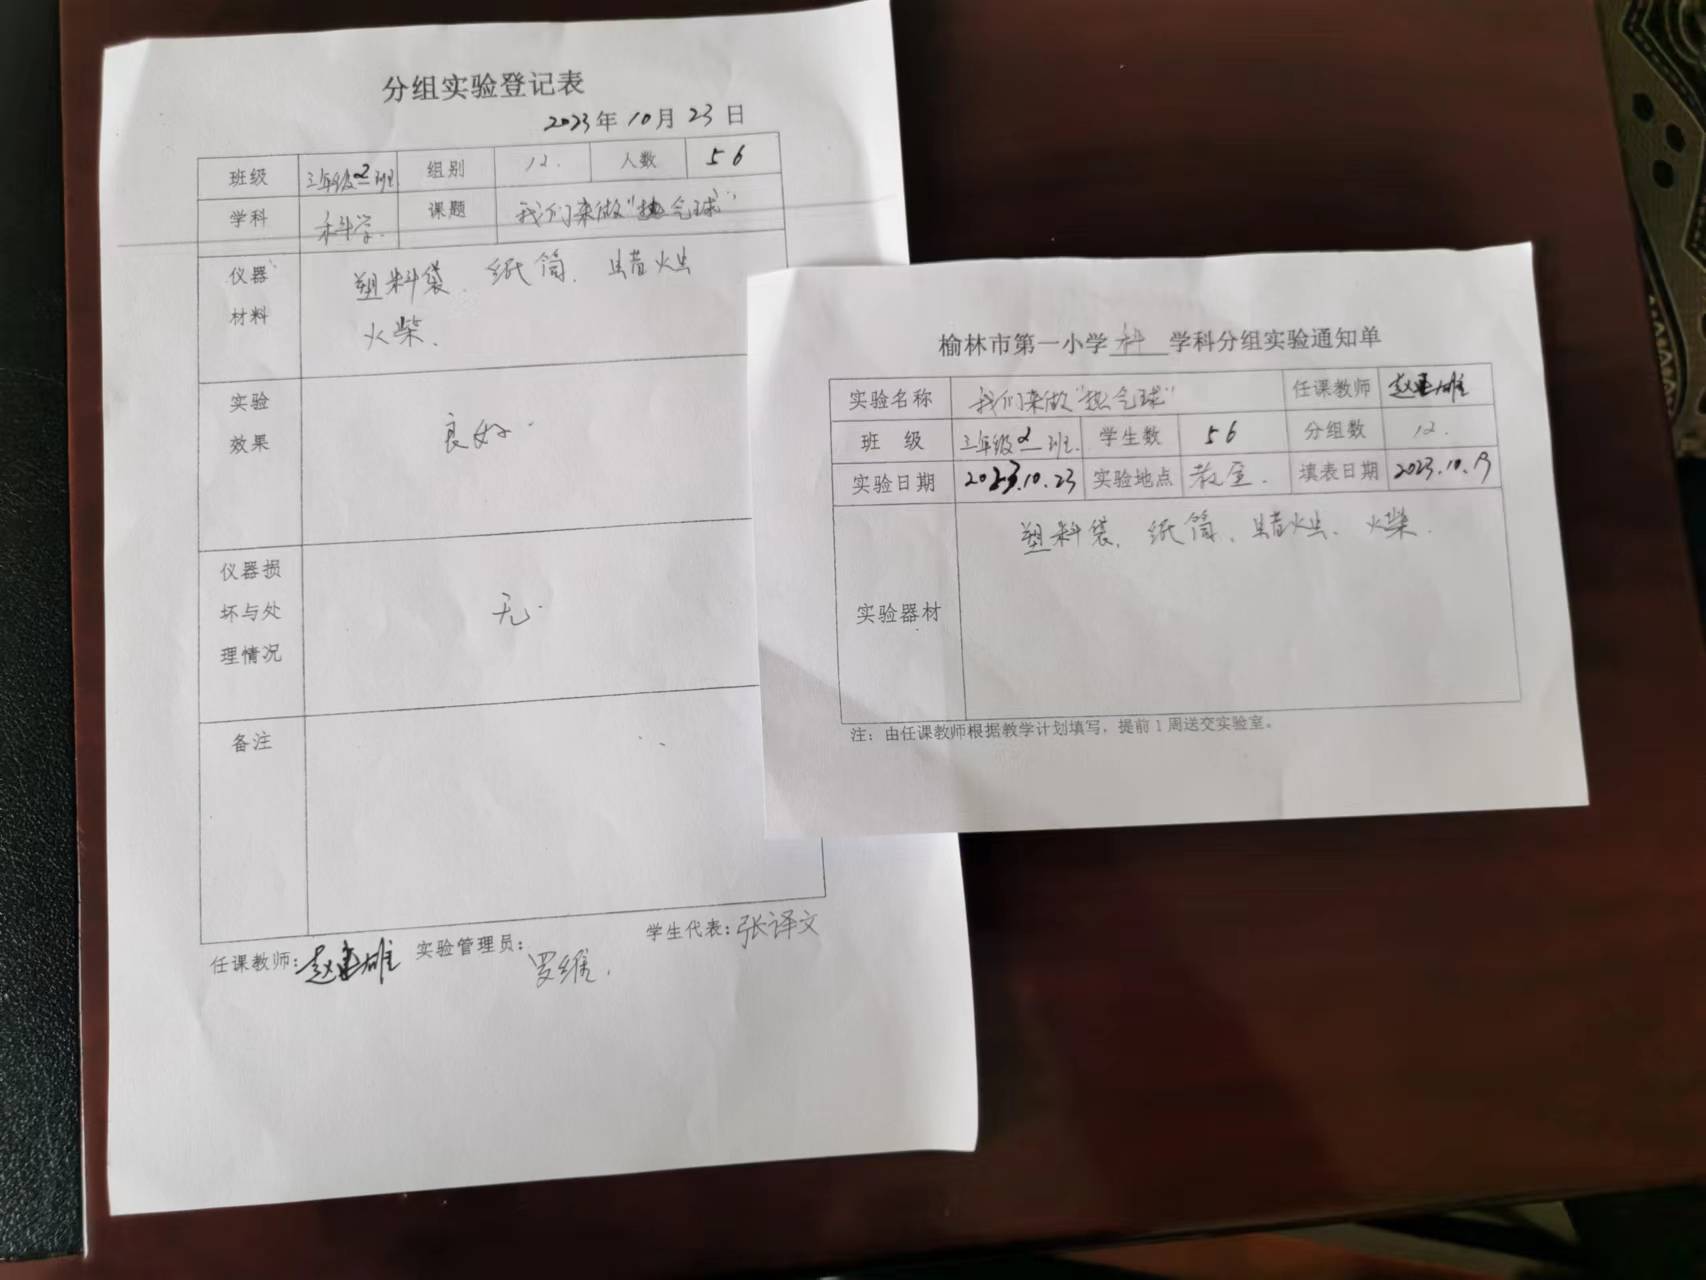 分组实验登记表
2023年10月23日
班级 三年级2班 组别 12. 人数 56
学科 科学. 课题 我们来做“热气球”
仪器 塑料袋、纸筒、蜡烛
材料 火柴.
实验
效果 良好.
仪器损
坏与处 无.
理情况
备注
任课教师: 赵 雄 实验管理员: 罗维. 学生代表: 张译文
榆林市第一小学 科 学科分组实验通知单
实验名称 我们来做“热气球” 任课教师 赵 雄
班 级 三年级2班. 学生数 56 分组数 12.
实验日期 2023.10.23 实验地点 教室. 填表日期 2023.10.
塑料袋、纸筒、蜡烛、火柴.
实验器材
注：由任课教师根据教学计划填写，提前1周送交实验室。